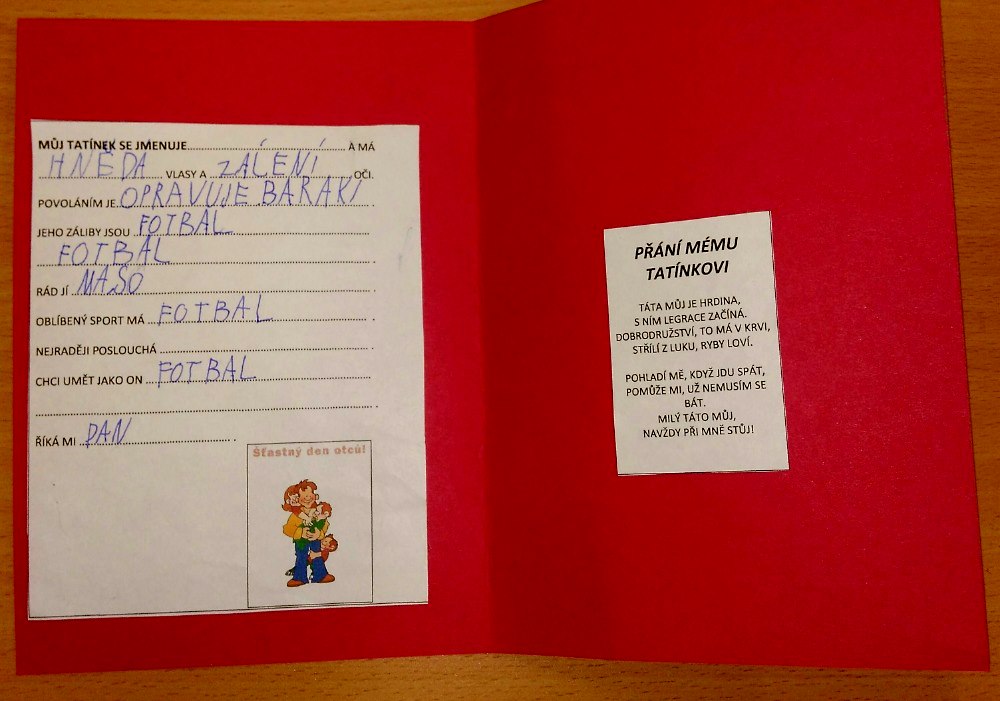 MŮJ TATÍNEK SE JMENUJE.................................................... A MÁ
HNĚDA VLASY A ZALENÍ OČI.
POVOLÁNÍM JE OPRAVUJE BARAKI
JEHO ZÁLIBY JSOU FOTBAL
FOTBAL
RÁD JÍ MASO
OBLÍBENÝ SPORT MÁ FOTBAL
NEJRADĚJI POSLOUCHÁ .................................................... .
CHCI UMĚT JAKO ON FOTBAL
.................................................... .
ŘÍKÁ MI DAN
Šťastný den otců!
PŘÁNÍ MÉMU
TATÍNKOVI
TÁTA MŮJ JE HRDINA,
S NÍM LEGRACE ZAČÍNÁ.
DOBRODRUŽSTVÍ, TO MÁ V KRVI,
STŘÍLÍ Z LUKU, RYBY LOVÍ.
POHLADÍ MĚ, KDYŽ JDU SPÁT,
POMŮŽE MI, UŽ NEMUSÍM SE
BÁT.
MILÝ TÁTO MŮJ,
NAVŽDY PŘI MNĚ STŮJ!